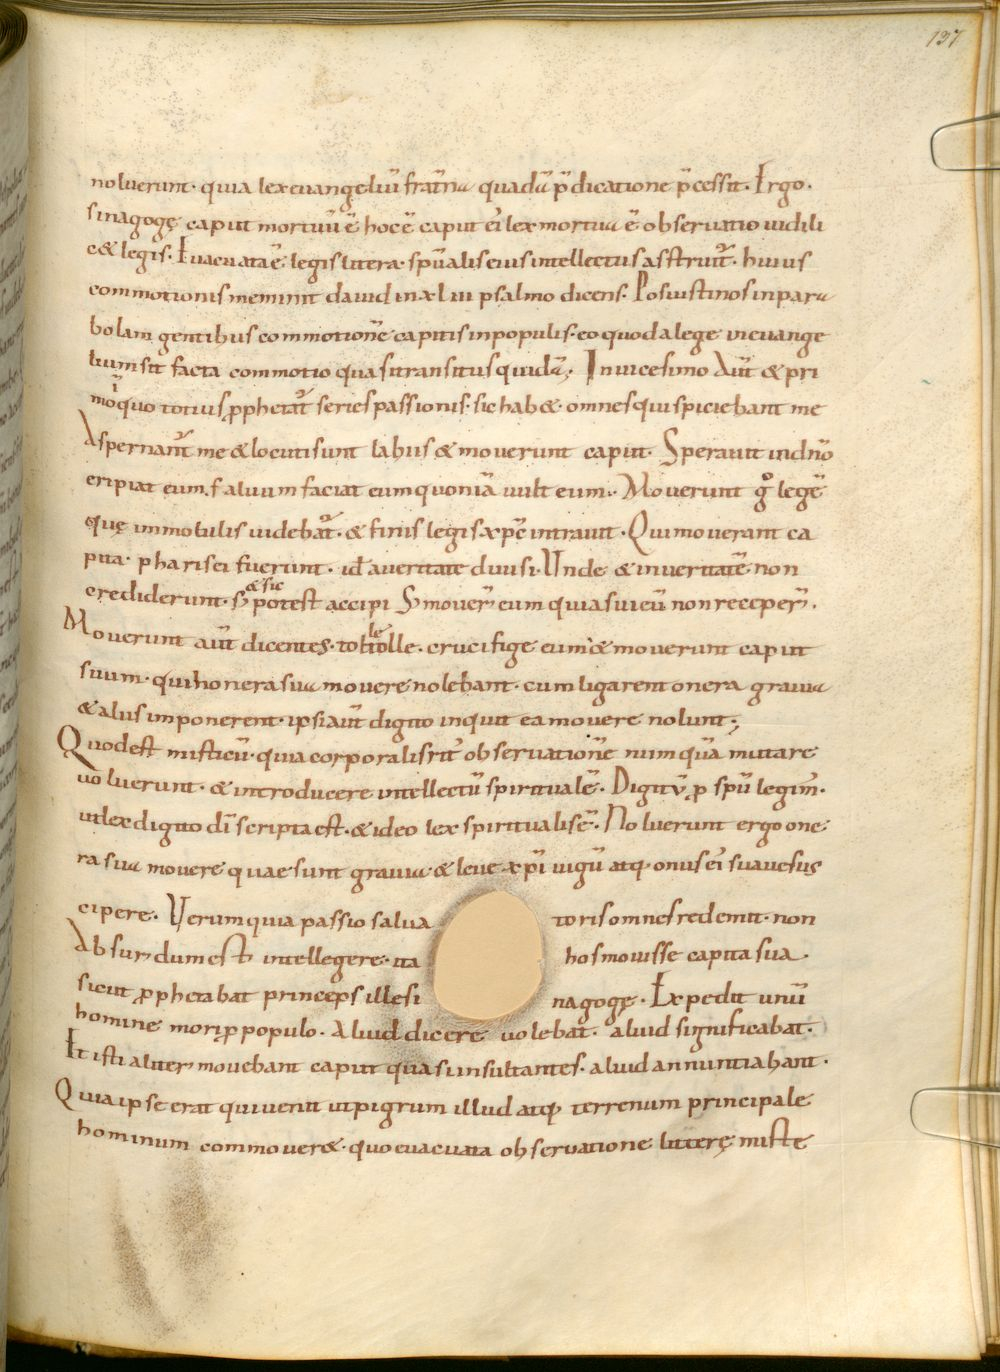 137
noluerunt· quia lex euangeliũ fratrna quadã p̃dicatione p̃cessit. Ergo·
sinagogę caput mortuũ ẽ hoc ẽ caput ei͂ lex mortua ẽ obseruatio uidili
c& legis. Euacuata ẽ legis litera· sp̃ualis eius intellectus astruit͂. huius
commotionis meminit dauid in xliii psalmo dicens. Posuisti nos in para
bolam gentibus commotionẽ capitis in populis· eo quod a lege in euange
lium sit facta commotio quasi transitus quidã; In uicesimo aut͂ & pri
mo ĩ quo totius p̱phetat͂ series passionis· sic hab&· omnes qui spiciebant me
Aspernant͂ me & locuti sunt labiis & mouerunt caput. Sperauit in dño
eripiat eum· saluum faciat eum quoniã uult eum·. Mouerunt g͂ legẽ
quę immobilis uidebat͂· & finis legis xp̃c intrauit. Qui mouerant ca
pita· pharisei fuerunt· id̃ a ueritate diuisi. Unde & in ueritatẽ non
crediderunt. S; &sic potest accipi S; mouer͂ eum quia sui eũ non recep̱er͂.
Mouerunt aut͂ dicentes· tolle tolle· crucifige eum· & mouerunt caput
suum· qui honera sua mouere nolebant· cum ligarent onera grauia
& aliis imponerent· ipsi aut͂ digito inquit ea mouere nolunt;
Quod est misticũ· quia corporalis rit͂ obseruationẽ numquã mutare
uoluerunt· & introducere intellectũ spiritualẽ. Digitũ p̱ sp̃u legim͂·
ut lex digito dĩ scripta est· & ideo lex spiritualis ẽ. Noluerunt ergo one
ra sua mouere quae sunt grauia· & leue xp̃i iugũ atq; onus ei͂ suaue sus
cipere. Verum quia passio salua toris omnes redemit· non
Absurdum est intellegere· ita hos mouisse capita sua·
sicut p̱phetabat princeps ille si nagogę. Expedit unũ
hominẽ mori p̱ populo. aliud dicere uolebat· aliud significabat.
Et isti aliter mouebant caput quasi insultantes· aliud annuntiabant·
Quia ipse erat qui uenit ut pigrum illud atq; terrenum principale
hominum commouer&· quo euacuata obseruatione litterę miste